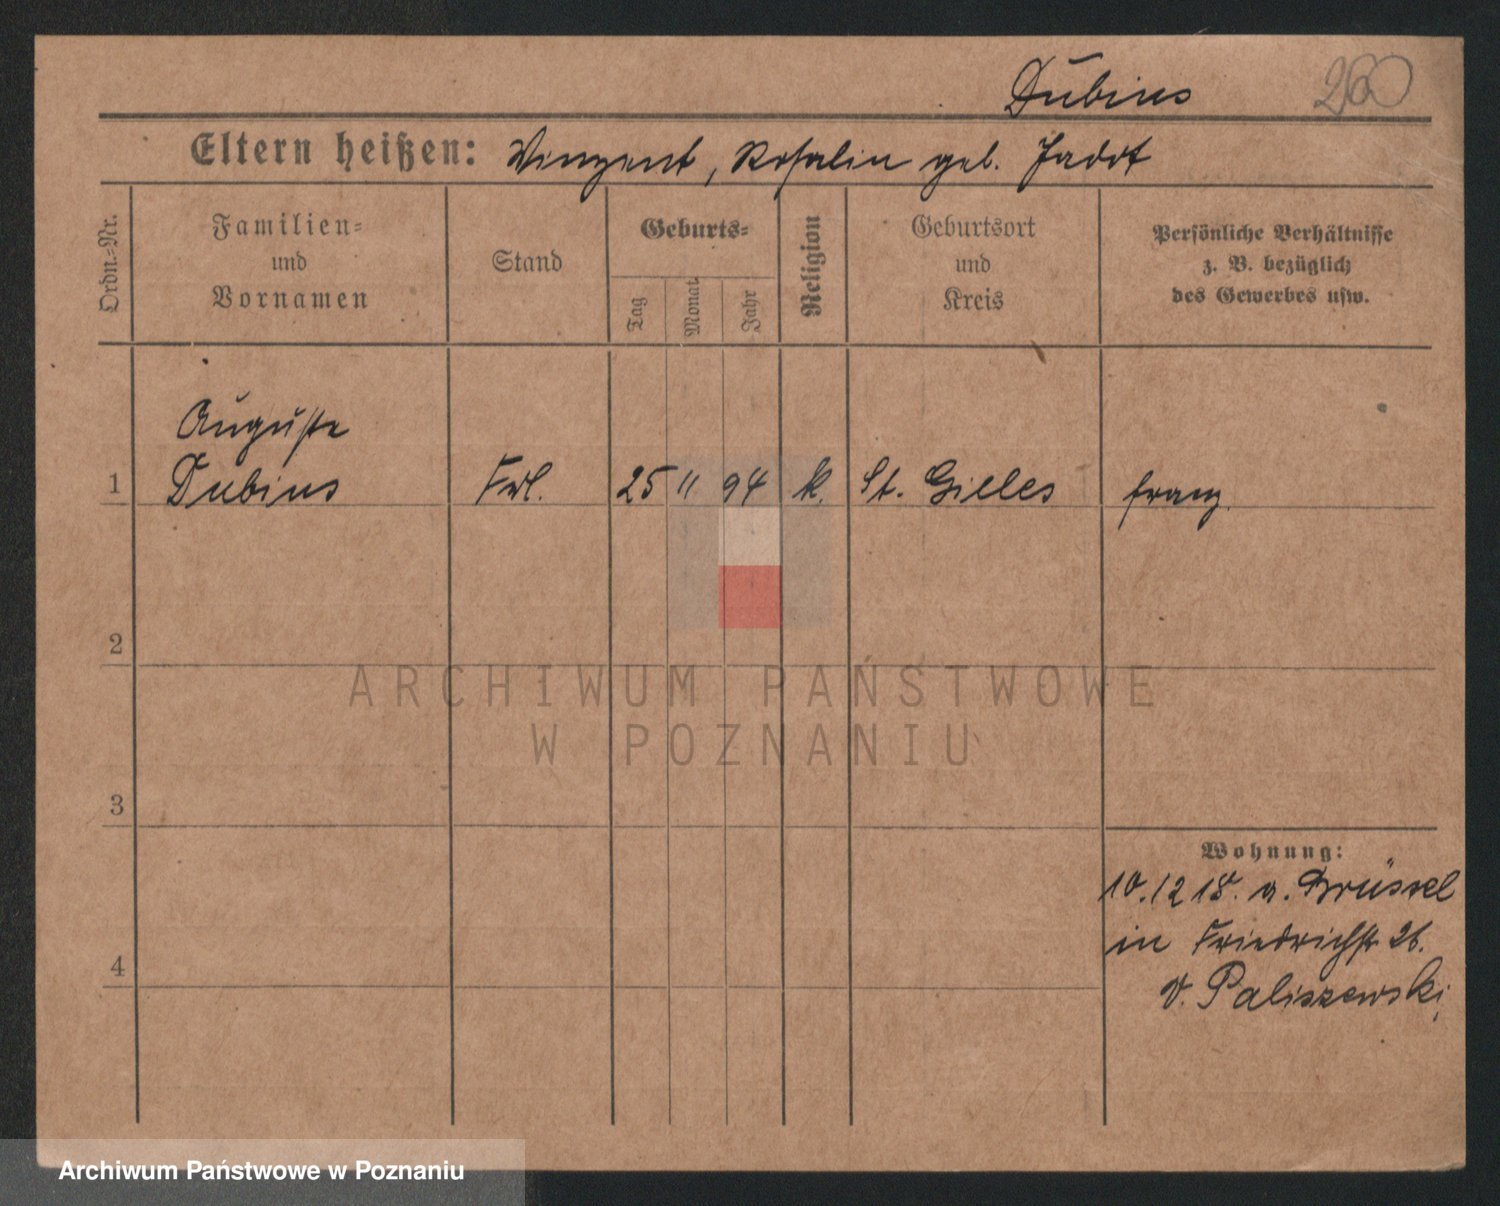 Dubius
260
Eltern heißen: Vinzent, Rosalin geb. Jadot
Ordn.-Nr.
Familien-
und
Vornamen
Stand
Geburts-
Tag
Monat
Jahr
Religion
Geburtsort
und
Kreis
Persönliche Verhältnisse
z. B. bezüglich
des Gewerbes usw.
Auguste
1 Dubius Frl. 25 11 94 k. St. Gilles franz.
2
ARCHIWUM PAŃSTWOWE
W POZNANIU
3
Wohnung:
10.12 18. a. Brüssel
in Friedrichstr 26.
4
v. Paliszewski
Archiwum Państwowe w Poznaniu